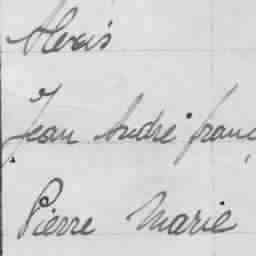 Alexis
Jean André franç
Pierre Marie